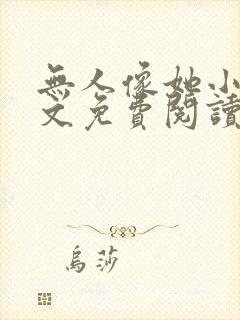 無人像她小
文免費閱讀
烏莎